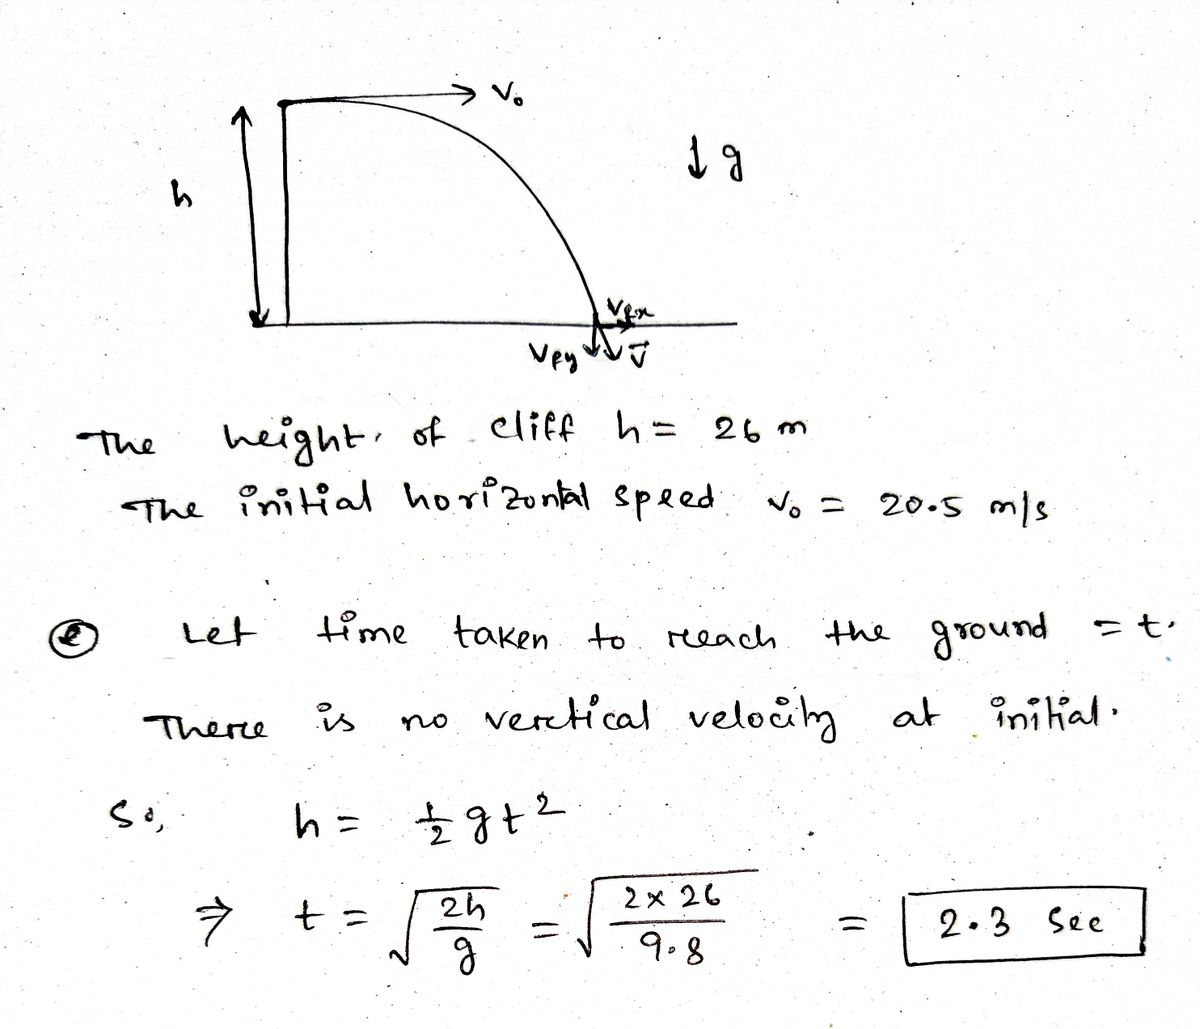 V₀
↓ g
h
Vfx
Vfy V⃗
The height of cliff h = 26 m
The initial horizontal speed V₀ = 20.5 m/s
(e) Let time taken to reach the ground = t.
There is no vertical velocity at initial.
So, h = ½ g t²
⇒ t = √(2h/g) = √(2×26/9.8) = 2.3 Sec